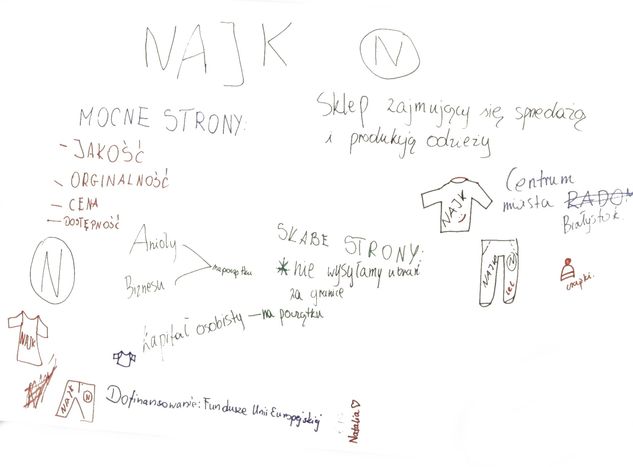 NAJK
N
MOCNE STRONY:
- JAKOŚĆ
- ORGINALNOŚĆ
- CENA
- DOSTĘPNOŚĆ
Sklep zajmujący się sprzedażą
i produkcją odzieży
NAJK
Centrum
miasta RADO
Białystok
N
Anioły
Biznesu
na początku
SKABE STRONY:
* nie wysyłamy ubrań
za granicę
NAJK
N
czapki.
NAJK
Kapitał osobisty – na początku
NAJK
N
Dofinansowanie: Fundusze Unii Europejskiej
Natalia